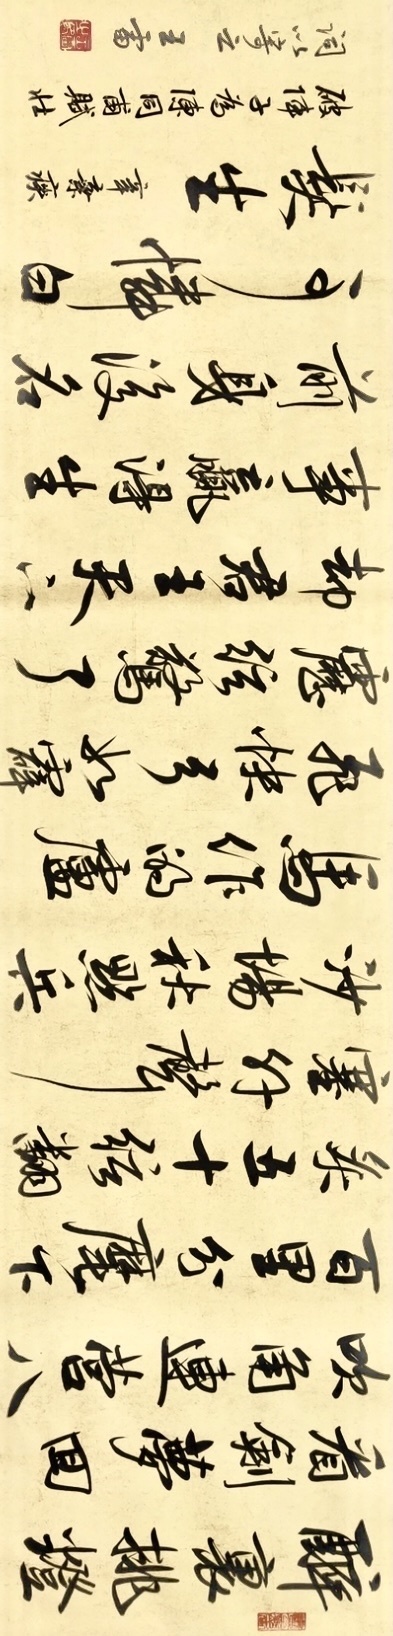 醉裏挑燈
看劍夢回
吹角連營八
百里分麾下
炙五十絃翻
塞外聲
沙場秋點兵
馬作的盧
飛快弓如霹
靂絃驚了
却君王天下
事贏得生
前身後名
可憐白
髮生 辛棄疾
破陣子為陳同甫賦壯
詞以寄之